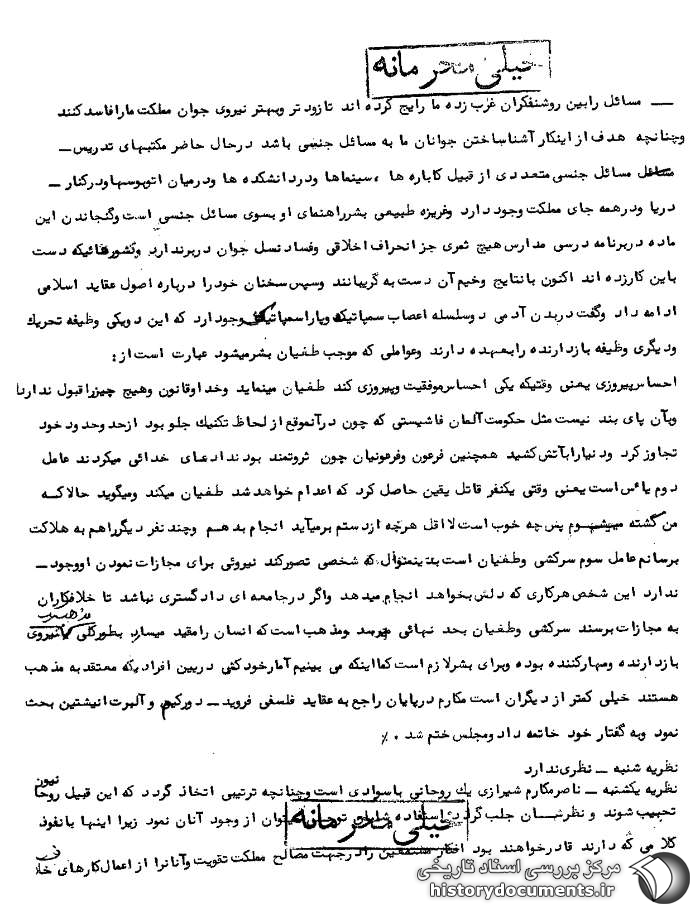 خیلی محرمانه
ــ مسائل را بین روشنفکران غرب زده ما رایج کرده اند تا زودتر و بهتر نیروی جوان مملکت ما را فاسد کنند
و چنانچه هدف از اینکار آشنا ساختن جوانان ما به مسائل جنسی باشد در حال حاضر مکتبهای تدریس ــ
مسائل جنسی متعددی از قبیل کاباره ها ، سینماها و در دانشکده ها و در میان اتوبوسها و در کنار ــ
دریا و در همه جای مملکت وجود دارد و غریزه طبیعی بشر راهنمای او بسوی مسائل جنسی است و گنجاندن این
ماده در برنامه درسی مدارس هیچ ثمری جز انحراف اخلاقی و فساد نسل جوان در بر ندارد و کشورهائیکه دست
باین کار زده اند اکنون با نتایج وخیم آن دست به گریبانند و سپس سخنان خود را درباره اصول عقاید اسلامی
ادامه داد و گفت در بدن آدمی دو سلسله اعصاب سمپاتیک و پاراسمپاتیک وجود دارد که این دو یکی وظیفه تحریک
و دیگری وظیفه بازدارنده را بعهده دارند و عواملی که موجب طغیان بشر میشود عبارت است از :
احساس پیروزی یعنی وقتیکه یکی احساس موفقیت و پیروزی کند طغیان مینماید و خدا و قانون و هیچ چیز را قبول ندارد
و بآن پای بند نیست مثل حکومت آلمان فاشیستی که چون در آنموقع از لحاظ تکنیک جلو بود از حد و حدود خود
تجاوز کرد و دنیا را بآتش کشید همچنین فرعون و فرعونیان چون ثروتمند بودند ادعای خدائی میکردند عامل
دوم یائس است یعنی وقتی یکنفر قاتل یقین حاصل کرد که اعدام خواهد شد طغیان میکند و میگوید حالا که
من گشته میشوم پس چه خوب است لااقل هر چه از دستم برمیآید انجام بدهم و چند نفر دیگر را هم به هلاکت
برسانم عامل سوم سرکشی و طغیان است بدینمنوال که شخصی تصور کند نیروئی برای مجازات نمودن او وجود ــ
ندارد این شخص هر کاری که دلش بخواهد انجام میدهد و اگر در جامعه ای دادگستری نباشد تا خلافکاران
به مجازات برسند سرکشی و طغیان بحد نهائی میرسد و مذهب است که انسان را مقید میسازد بطور کلی مذهب نیروی
بازدارنده و مهارکننده بوده و برای بشر لازم است کما اینکه می بینیم آمار خودکشی در بین افرادیکه معتقد به مذهب
هستند خیلی کمتر از دیگران است مکارم در پایان راجع به عقاید فلسفی فروید ــ دورکیم و آلبرت انیشتین بحث
نمود و به گفتار خود خاتمه داد و مجلس ختم شد . ٪
نظریه شنبه ــ نظری ندارد
نظریه یکشنبه ــ ناصر مکارم شیرازی یک روحانی باسوادی است و چنانچه ترتیبی اتخاذ گردد که این قبیل روحانیون
تحبیب شوند و نظرشان جلب گردد استفاده شایان میتوان از وجود آنان نمود زیرا اینها با نفوذ
کلامی که دارند قادر خواهند بود افکار را در جهت مصالح مملکت تقویت و آنانرا از اعمال کارهای خلاف
خیلی محرمانه
مرکز بررسی اسناد تاریخی
historydocuments.ir